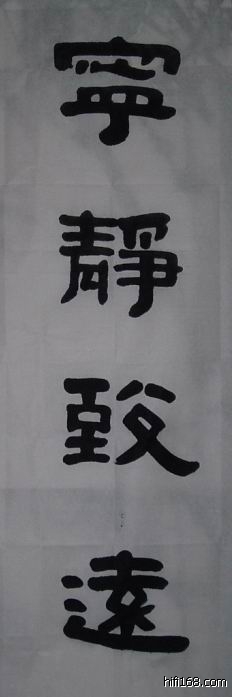 寧靜致遠
hifi168.com